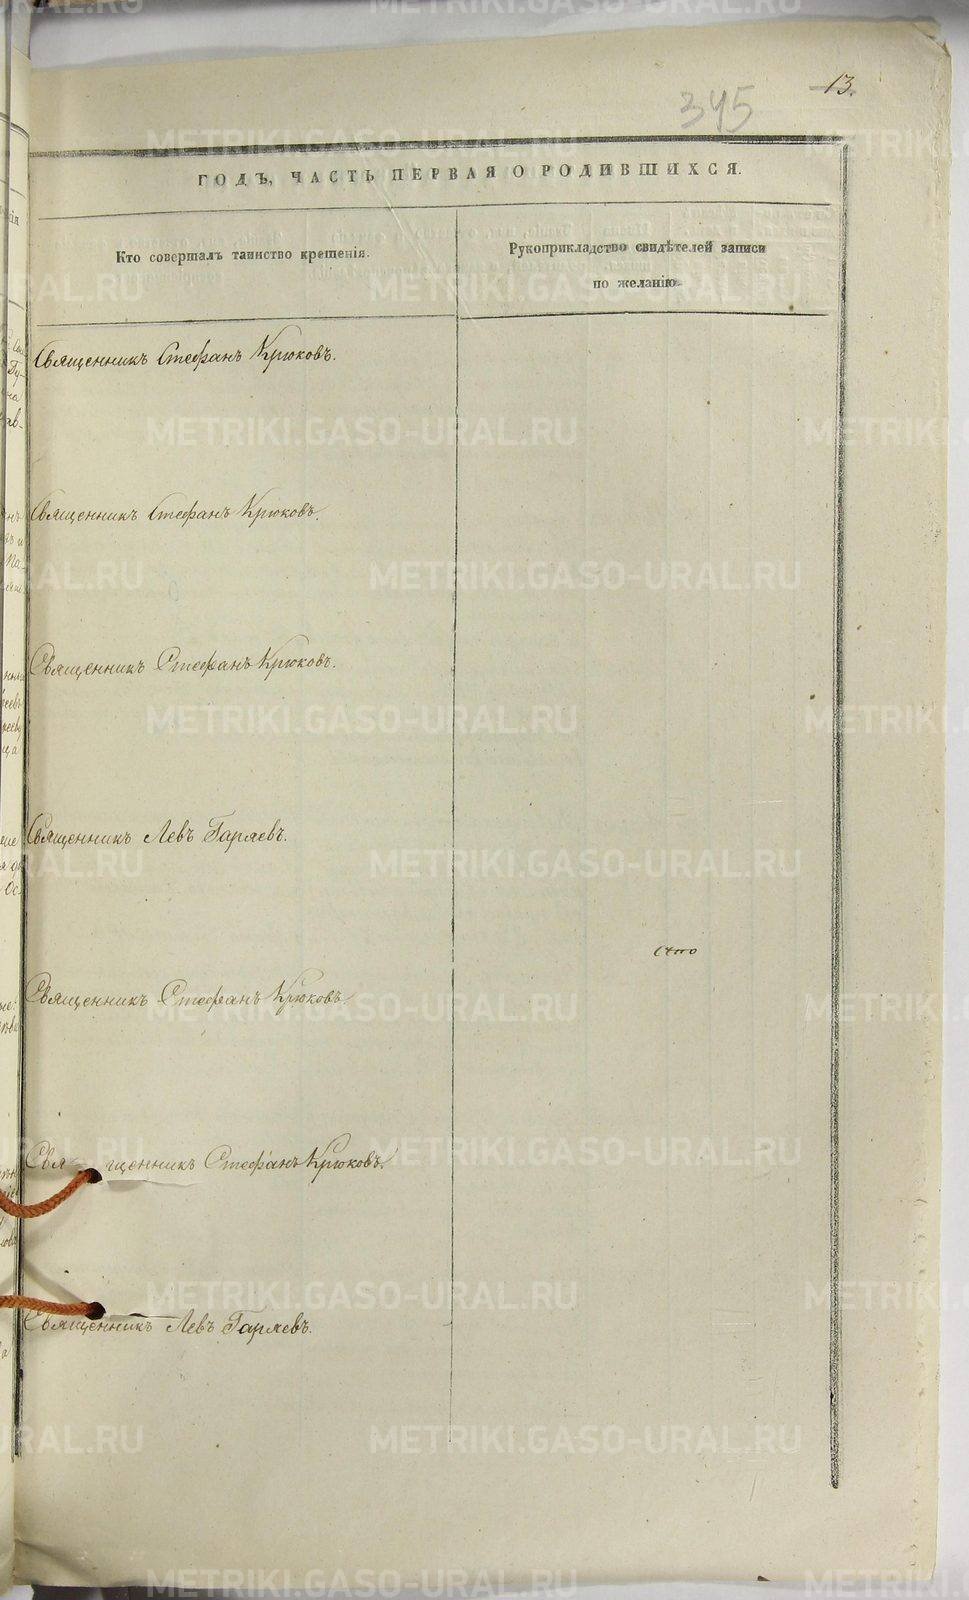 345
13.
ГОДЪ, ЧАСТЬ ПЕРВАЯ О РОДИВШИХСЯ.
Кто совершалъ таинство крещенія.
Рукоприкладство свидѣтелей записи
по желанію.
Священникъ Стефанъ Крюковъ.
Священникъ Стефанъ Крюковъ.
Священникъ Стефанъ Крюковъ.
Священникъ Левъ Гаряевъ.
Священникъ Стефанъ Крюковъ.
Священникъ Стефанъ Крюковъ.
Священникъ Левъ Гаряевъ.
METRIKI.GASO-URAL.RU